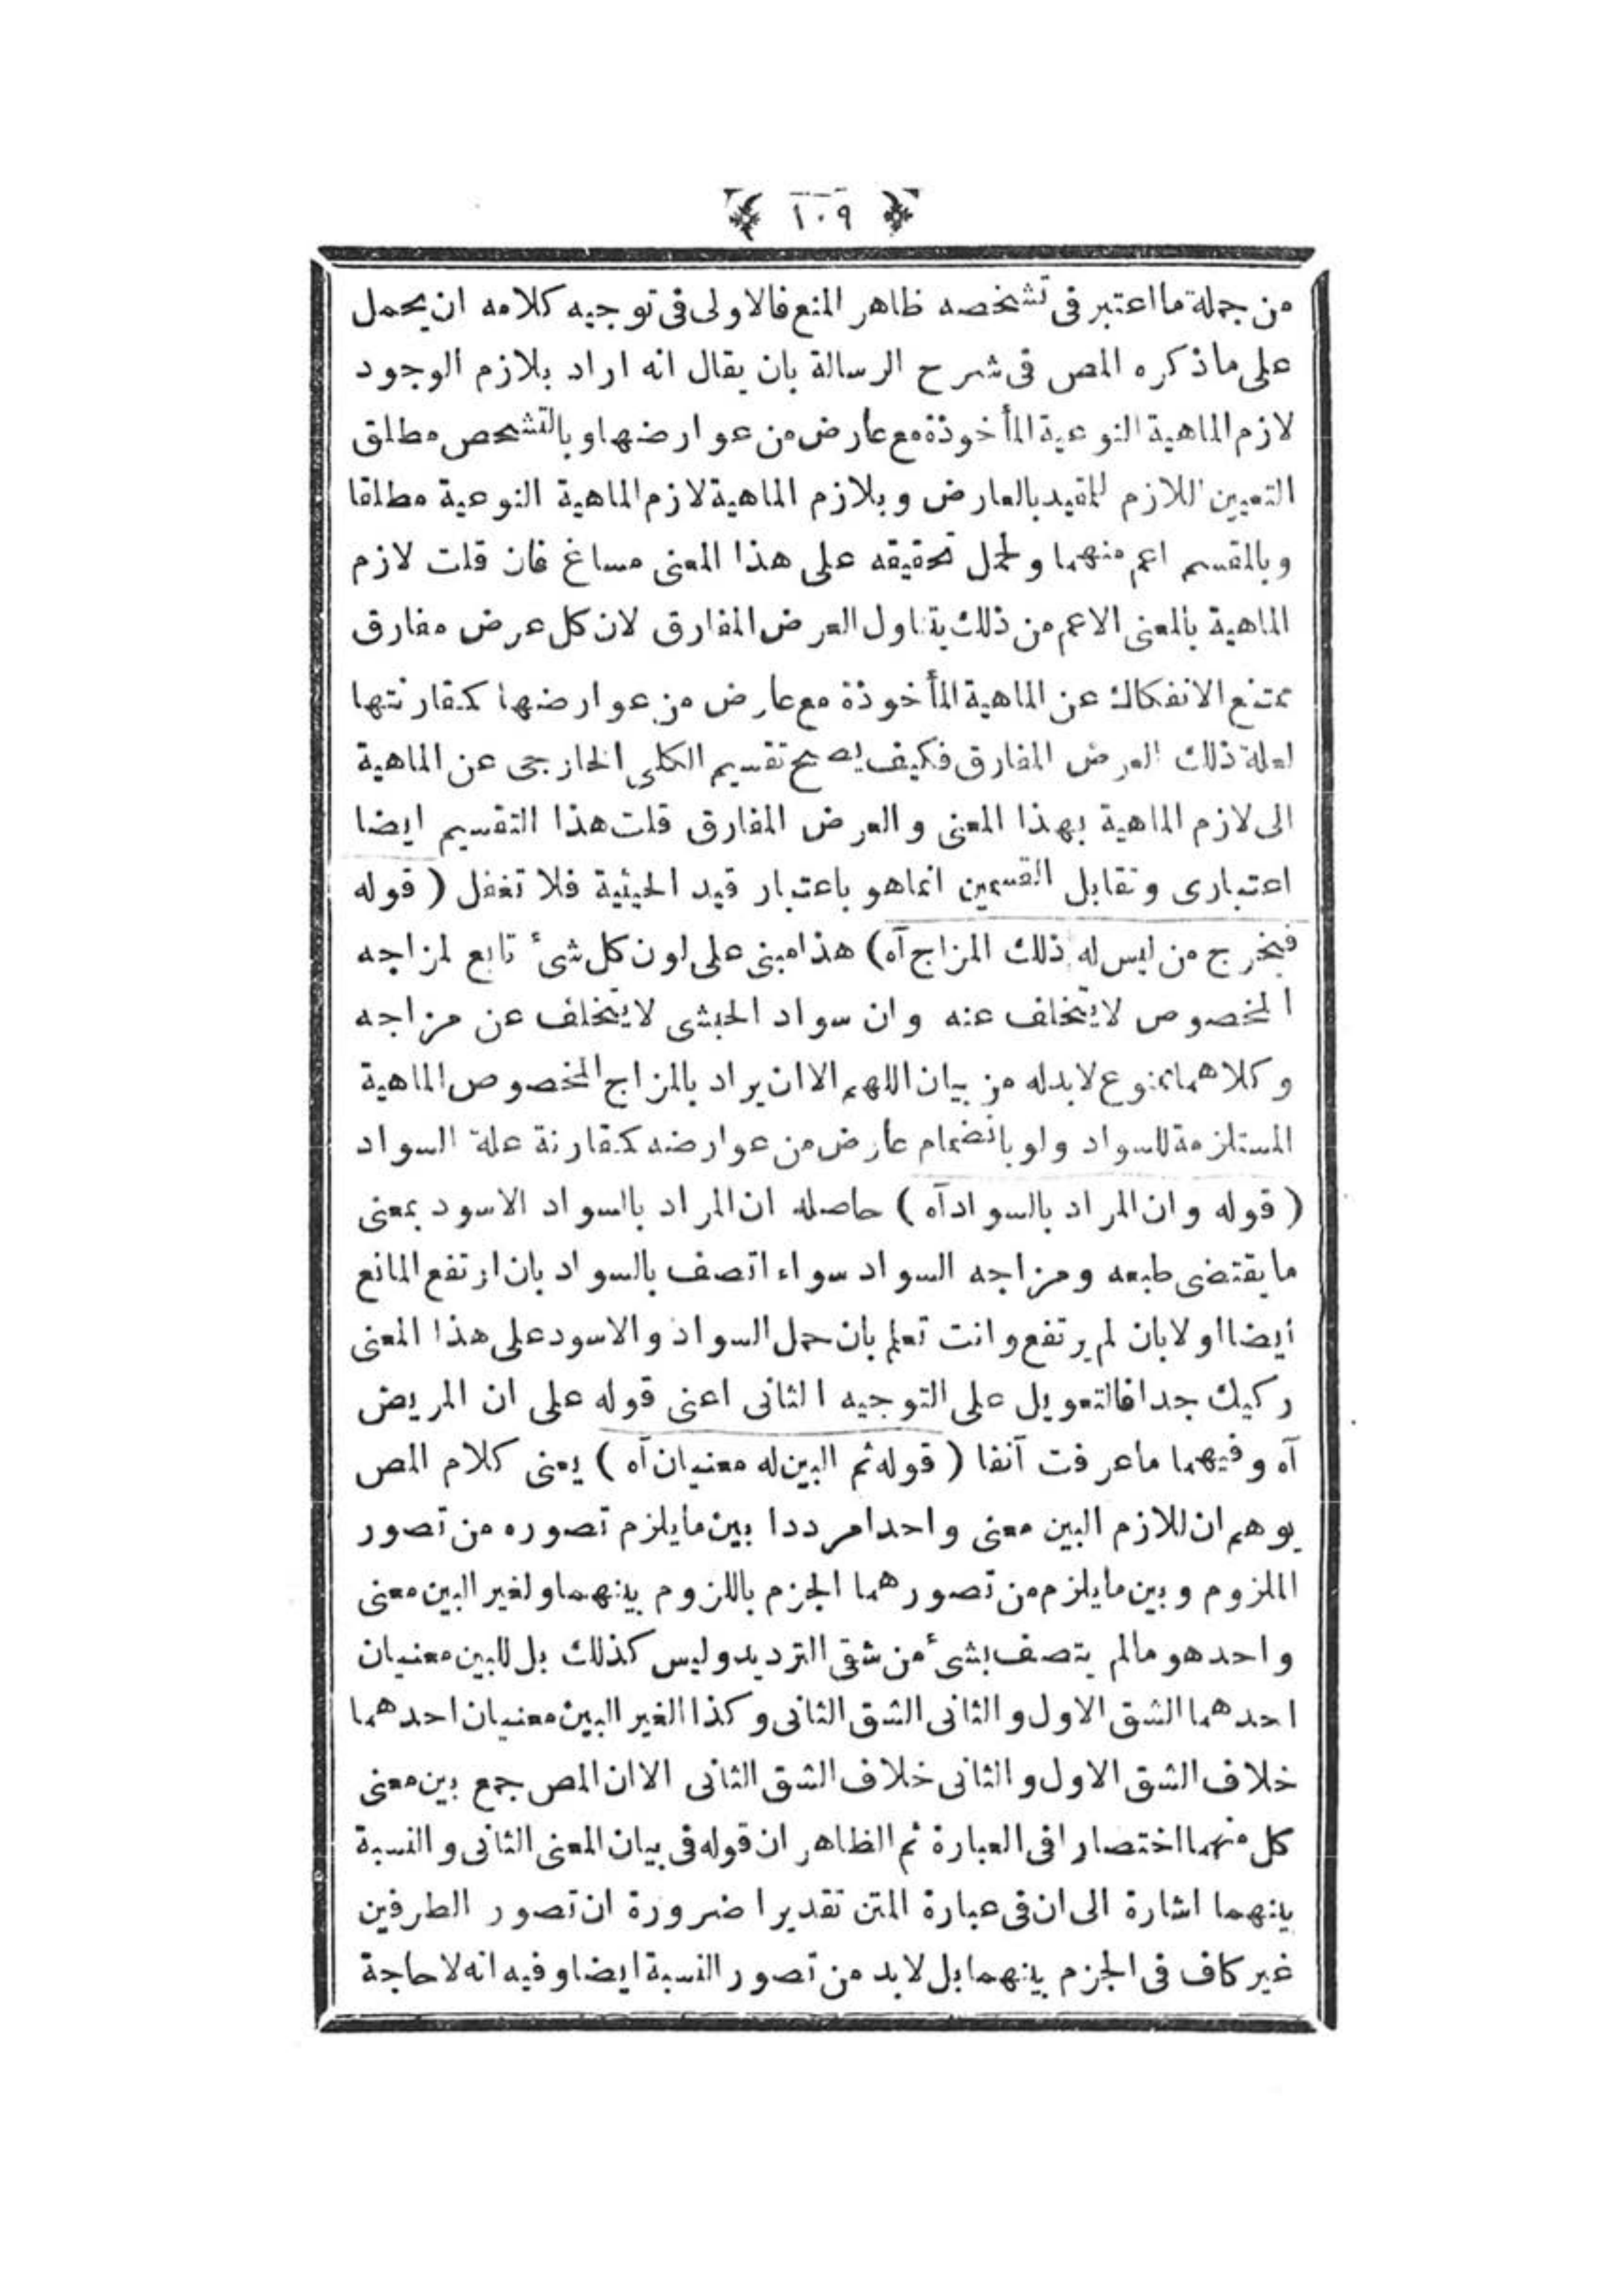 ١٠٩
من جملة ما اعتبر فى تشخصه ظاهر المنع فالاولى فى توجيه كلامه ان يحمل
على ما ذكره المص فى شرح الرسالة بان يقال انه اراد بلازم الوجود
لازم الماهية النوعية المأخوذة مع عارض من عوارضها وبالتشخص مطلق
التعيين اللازم للمقيد بالعارض وبلازم الماهية لازم الماهية النوعية مطلقا
وبالمقسم اعم منهما ولحمل تحقيقه على هذا المعنى مساغ فان قلت لازم
الماهية بالمعنى الاعم من ذلك يتناول العرض المفارق لان كل عرض مفارق
ممتنع الانفكاك عن الماهية المأخوذة مع عارض من عوارضها كمقارنتها
لعلة ذلك العرض المفارق فكيف يصح تقسيم الكلى الخارجى عن الماهية
الى لازم الماهية بهذا المعنى والعرض المفارق قلت هذا التقسيم ايضا
اعتبارى وتقابل القسمين انما هو باعتبار قيد الحيثية فلا تغفل ( قوله
فيخرج من ليس له ذلك المزاج آه ) هذا مبنى على لون كل شئ تابع لمزاجه
المخصوص لا يتخلف عنه وان سواد الحبشى لا يتخلف عن مزاجه
وكلاهما ممنوع لابد له من بيان اللهم الا ان يراد بالمزاج المخصوص الماهية
المستلزمة للسواد ولو بانضمام عارض من عوارضه كمقارنة علة السواد
( قوله وان المراد بالسواد آه ) حاصله ان المراد بالسواد الاسود بمعنى
ما يقتضى طبعه ومزاجه السواد سواء اتصف بالسواد بان ارتفع المانع
أيضا او لا بان لم يرتفع وانت تعلم بان حمل السواد والاسود على هذا المعنى
ركيك جدا فالتعويل على التوجيه الثانى اعنى قوله على ان المريض
آه وفيهما ما عرفت آنفا ( قوله ثم البين له معنيان آه ) يعنى كلام المص
يوهم ان للازم البين معنى واحدا مرددا بين ما يلزم تصوره من تصور
الملزوم وبين ما يلزم من تصورهما الجزم باللزوم بينهما ولغير البين معنى
واحد هو مالم يتصف بشئ من شقى الترديد وليس كذلك بل للبين معنيان
احدهما الشق الاول والثانى الشق الثانى وكذا الغير البين معنيان احدهما
خلاف الشق الاول والثانى خلاف الشق الثانى الا ان المص جمع بين معنى
كل منهما اختصارا فى العبارة ثم الظاهر ان قوله فى بيان المعنى الثانى والنسبة
بينهما اشارة الى ان فى عبارة المتن تقديرا ضرورة ان تصور الطرفين
غير كاف فى الجزم بينهما بل لابد من تصور النسبة ايضا وفيه انه لا حاجة